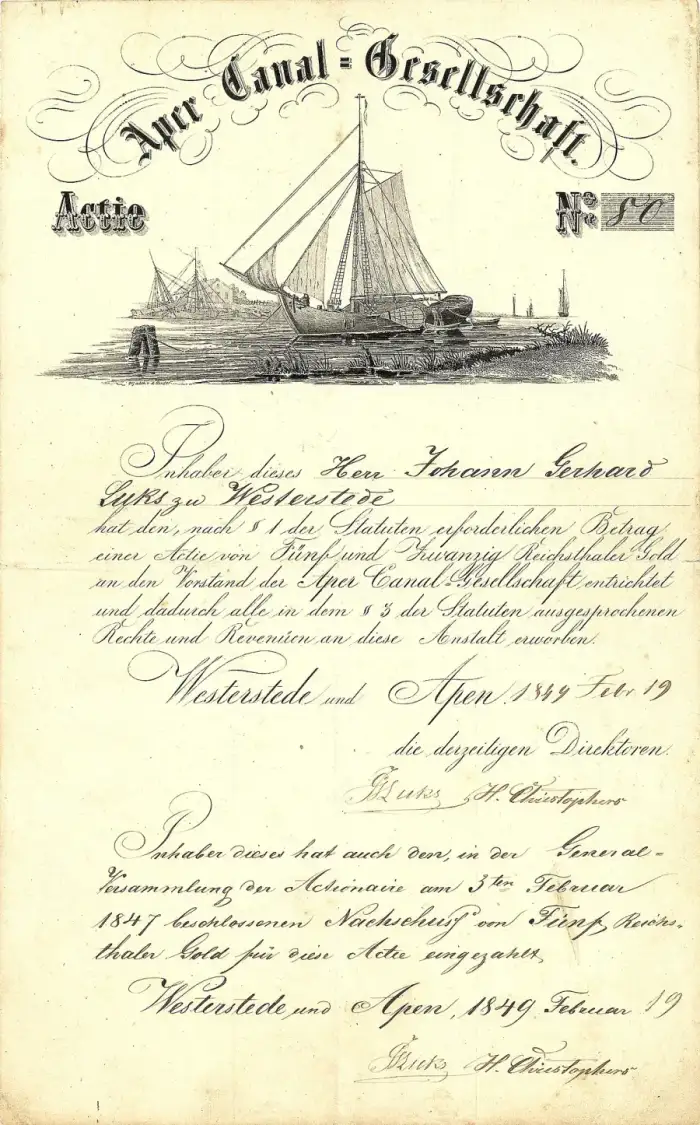 Aper Canal=Gesellschaft.
Actie
No 80
Inhaber dieses Herr Johann Gerhard
Luks zu Westerstede
hat den, nach § 1 der Statuten erforderlichen Betrag
einer Actie von Fünf und Zwanzig Reichsthaler Gold
an den Vorstand der Aper Canal-Gesellschaft entrichtet
und dadurch alle in dem § 3 der Statuten ausgesprochenen
Rechte und Revenüen an diese Anstalt erworben.
Westerstede und Apen. 1849 Febr 19
die derzeitigen Direktoren.
Luks H. Christophers
Inhaber dieses hat auch den, in der General=
Versammlung der Actionaire am 3ten Februar
1847 beschlossenen Nachschuß von Fünf Reichs-
thaler Gold für diese Actie eingezahlt,
Westerstede und Apen, 1849 Februar 19
Luks H. Christophers